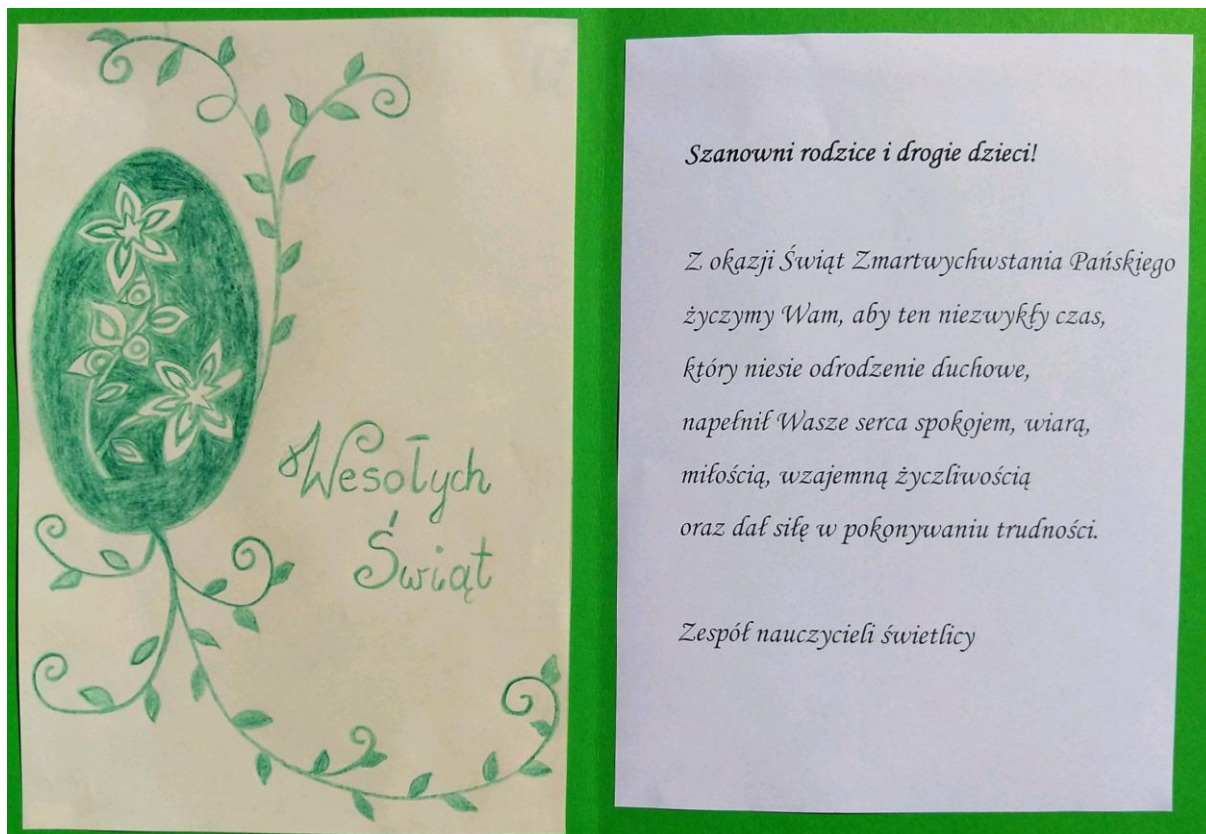 Wesołych
Świąt
Szanowni rodzice i drogie dzieci!
Z okazji Świąt Zmartwychwstania Pańskiego
życzymy Wam, aby ten niezwykły czas,
który niesie odrodzenie duchowe,
napełnił Wasze serca spokojem, wiarą,
miłością, wzajemną życzliwością
oraz dał siłę w pokonywaniu trudności.
Zespół nauczycieli świetlicy